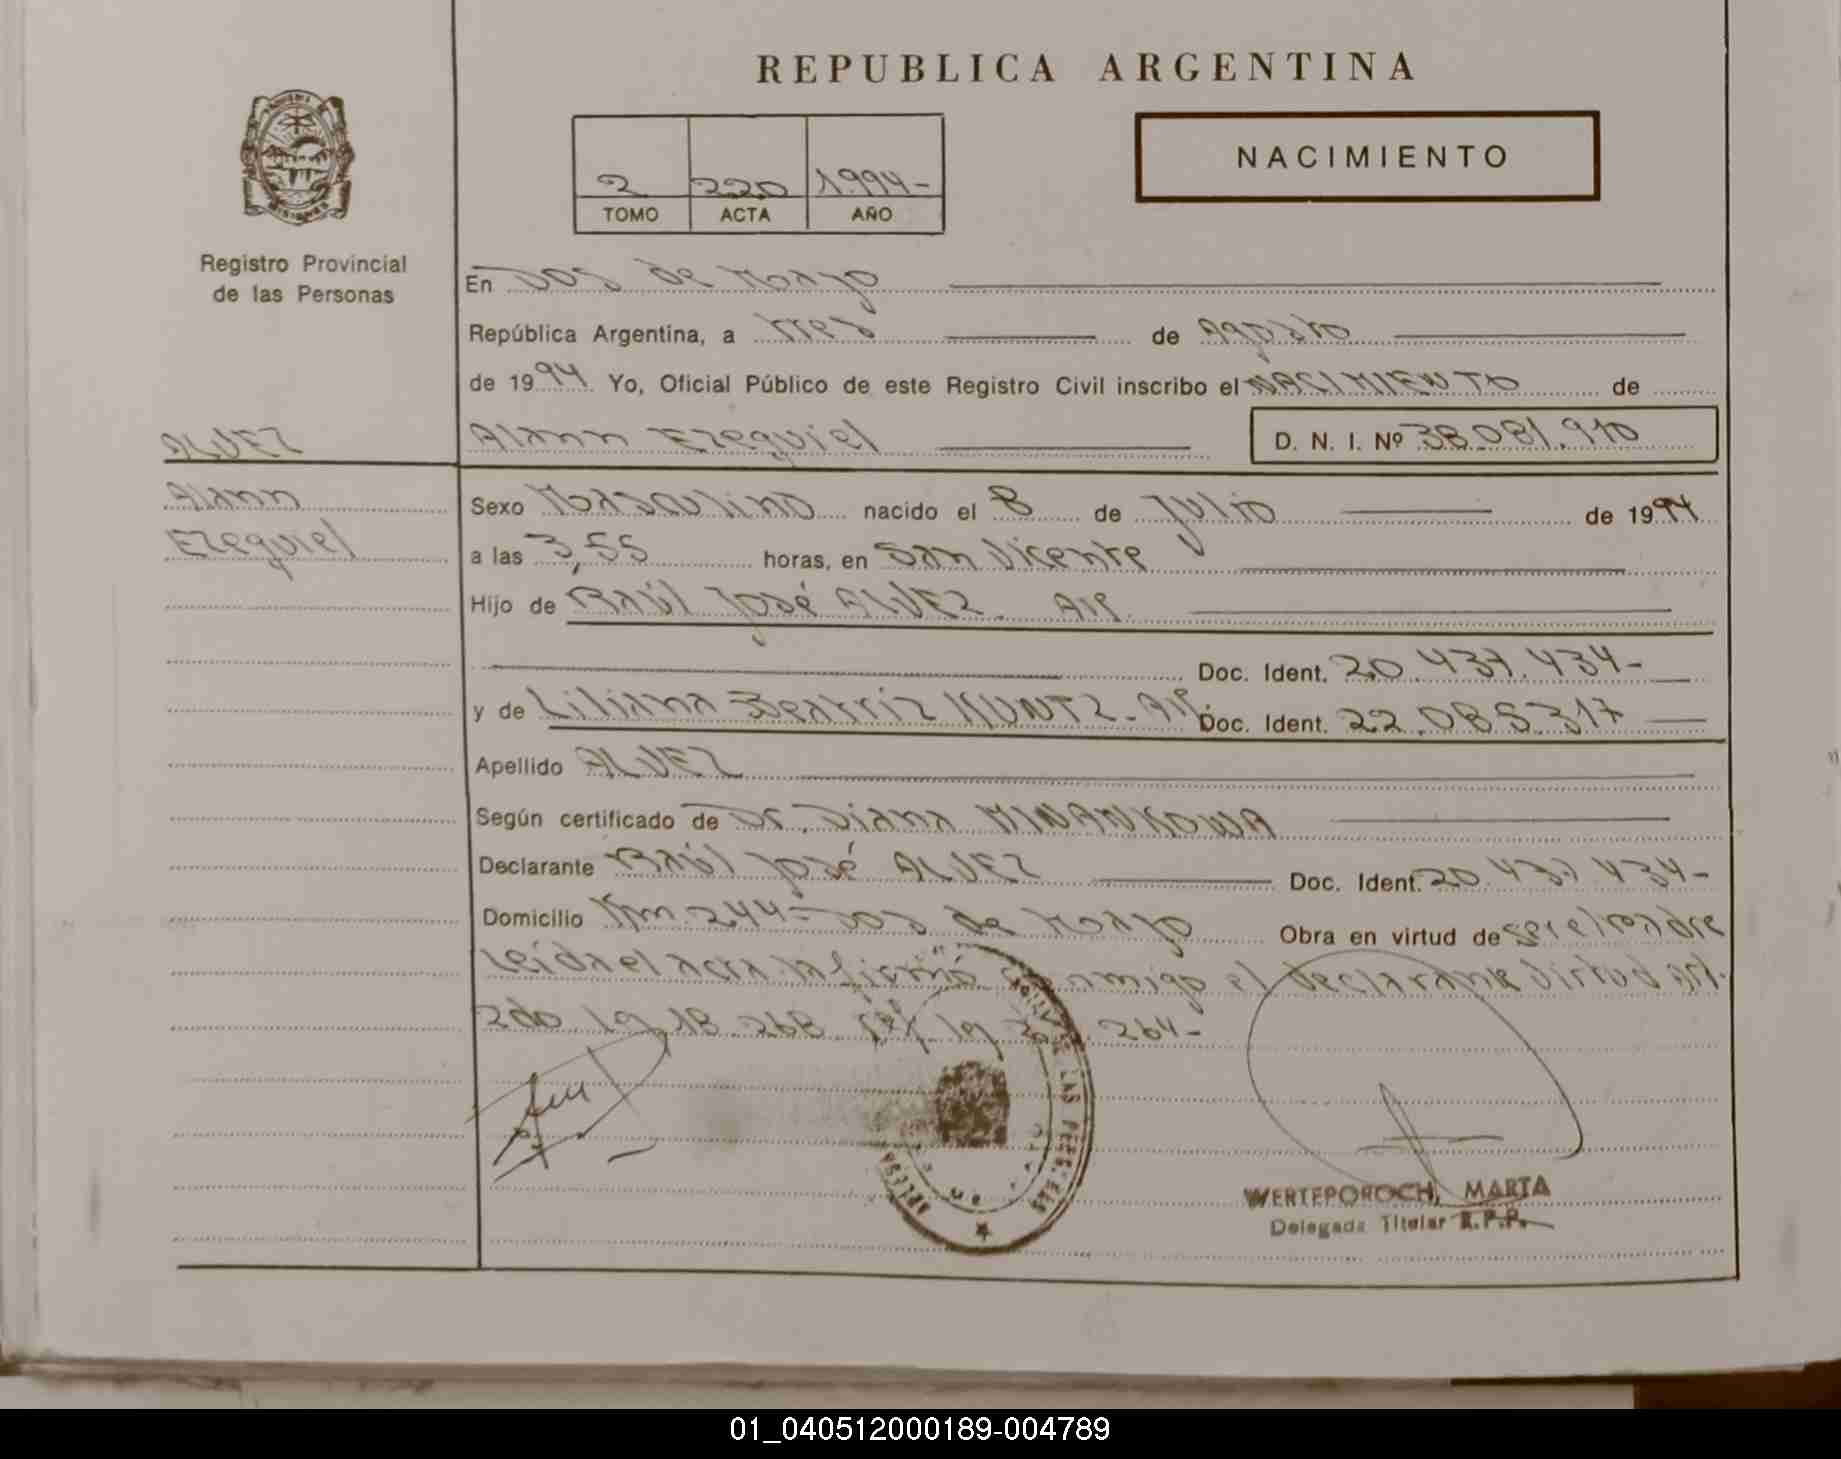 REPUBLICA ARGENTINA
NACIMIENTO
2 220 1994-
TOMO ACTA AÑO
Registro Provincial
de las Personas
En Dos de Mayo
República Argentina, a tres de Agosto
de 1994 Yo, Oficial Público de este Registro Civil inscribo el NACIMIENTO de
ALVEZ
Alann Ezequiel D. N. I. Nº 38.081.910
Alann
Ezequiel
Sexo Masculino nacido el 8 de Julio de 1994
a las 3,55 horas, en San Vicente
Hijo de Raúl José ALVEZ. Arg.
Doc. Ident. 20.437.434-
y de Liliana Beatriz KUNTZ - Arg. Doc. Ident. 22.085.317
Apellido ALVEZ
Según certificado de Dr. Diana
Declarante Raúl José ALVEZ Doc. Ident. 20.437.434-
Domicilio Km. 244 - Dos de Mayo Obra en virtud de ser el padre
Leída el acta la firmó conmigo el declarante Virtud art.
2do. 18.268 264-
WERTEPOROCH, MARTA
Delegada Titular R.P.P.
01_040512000189-004789